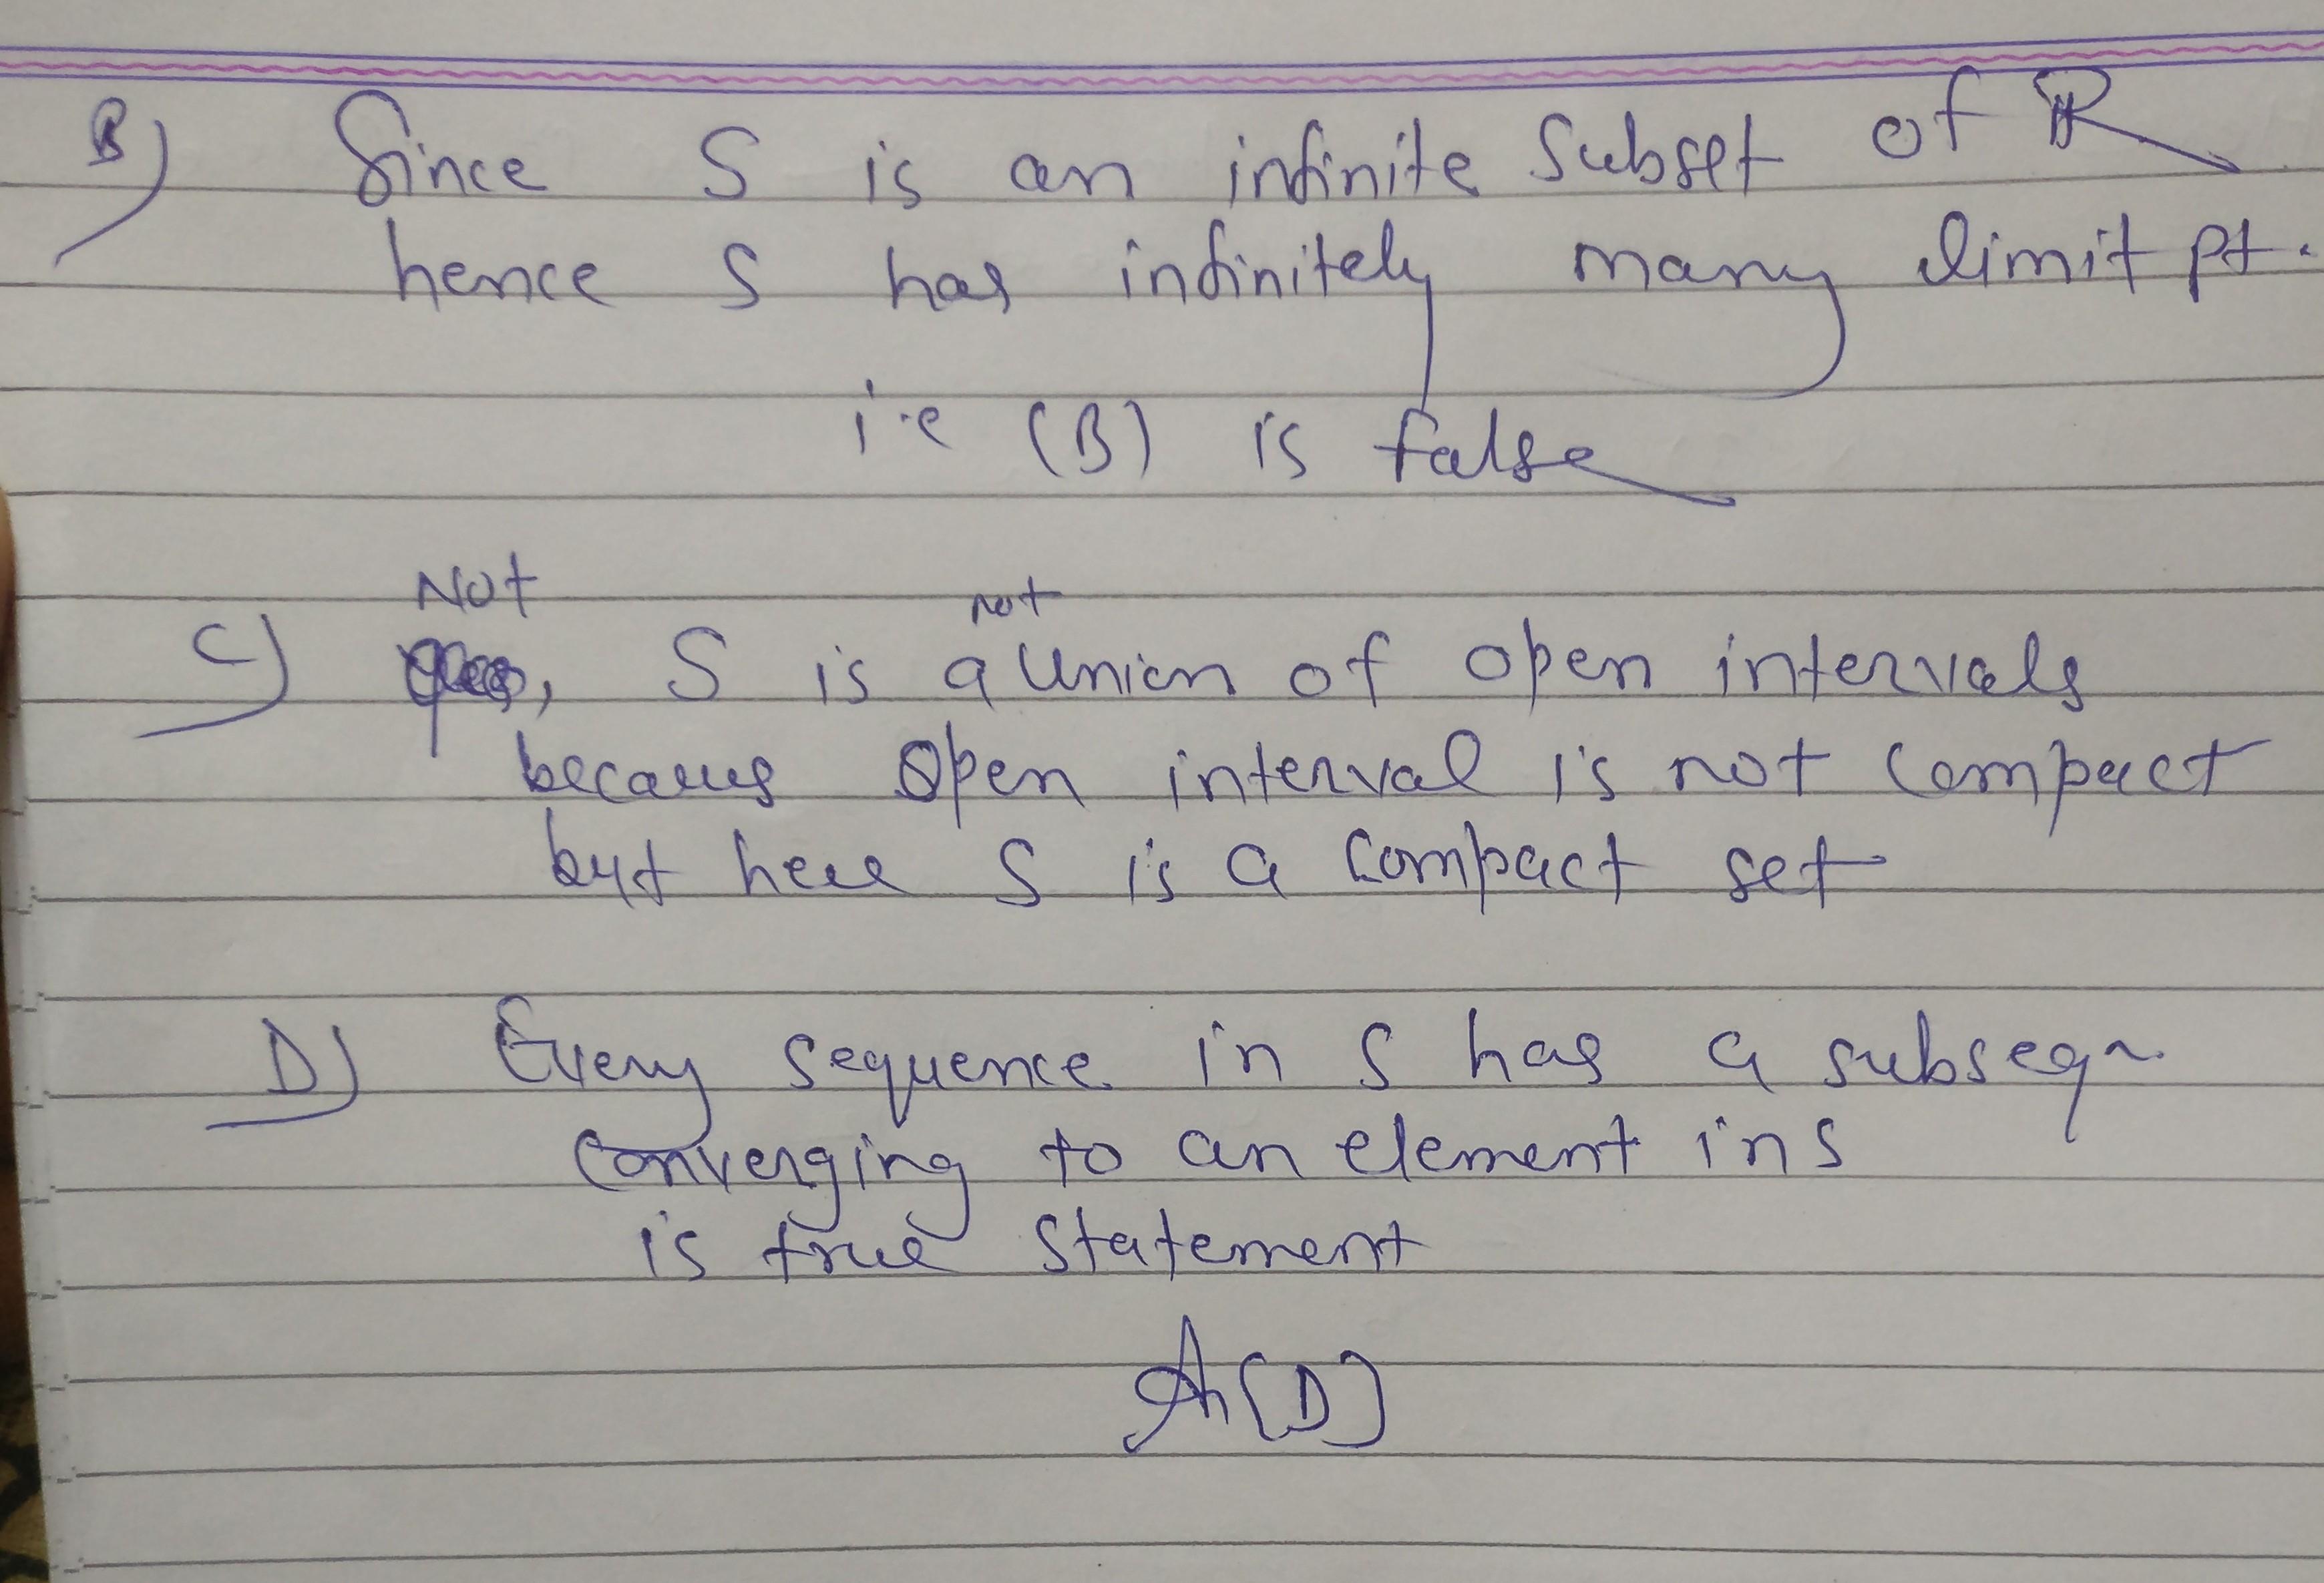 B) Since S is an infinite subset of R
hence S has infinitely many limit pt.
i.e (B) is false
Not not
C) , S is a union of open intervals
becaues open interval is not compact
but here S is a compact set
D) Every sequence in S has a subseqn
converging to an element in S
is true statement
An(D)